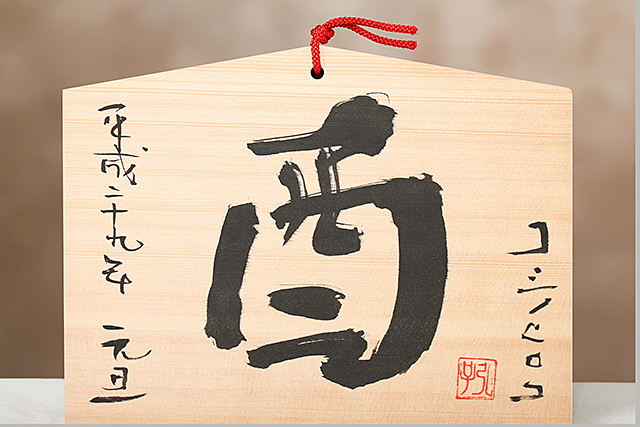 コシノヒロコ
弘子
酉
平成二十九年 元旦